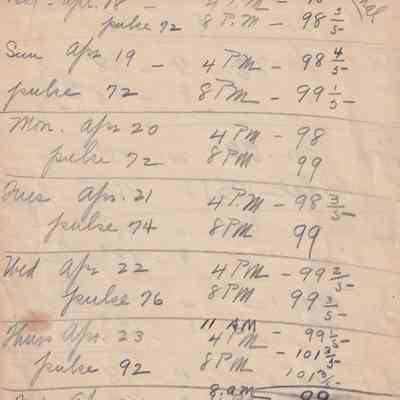 Apr. 18 - 4 P.M -
pulse 72 8 P.M - 98 3/5
Sun Apr 19 - 4 PM - 98 4/5
pulse 72 8PM - 99 1/5
Mon. Apr 20 4 PM - 98
pulse 72 8PM 99
Tues Apr. 21 4 P.M - 98 3/5
pulse 74 8 PM 99
Wed Apr 22 4 P.M - 99 2/5
pulse 76 8 PM 99 3/5
11 AM - 99 1/5
Thurs Apr. 23 4 PM - 101 3/5
pulse 92 8 PM 101 3/5
8. am 99